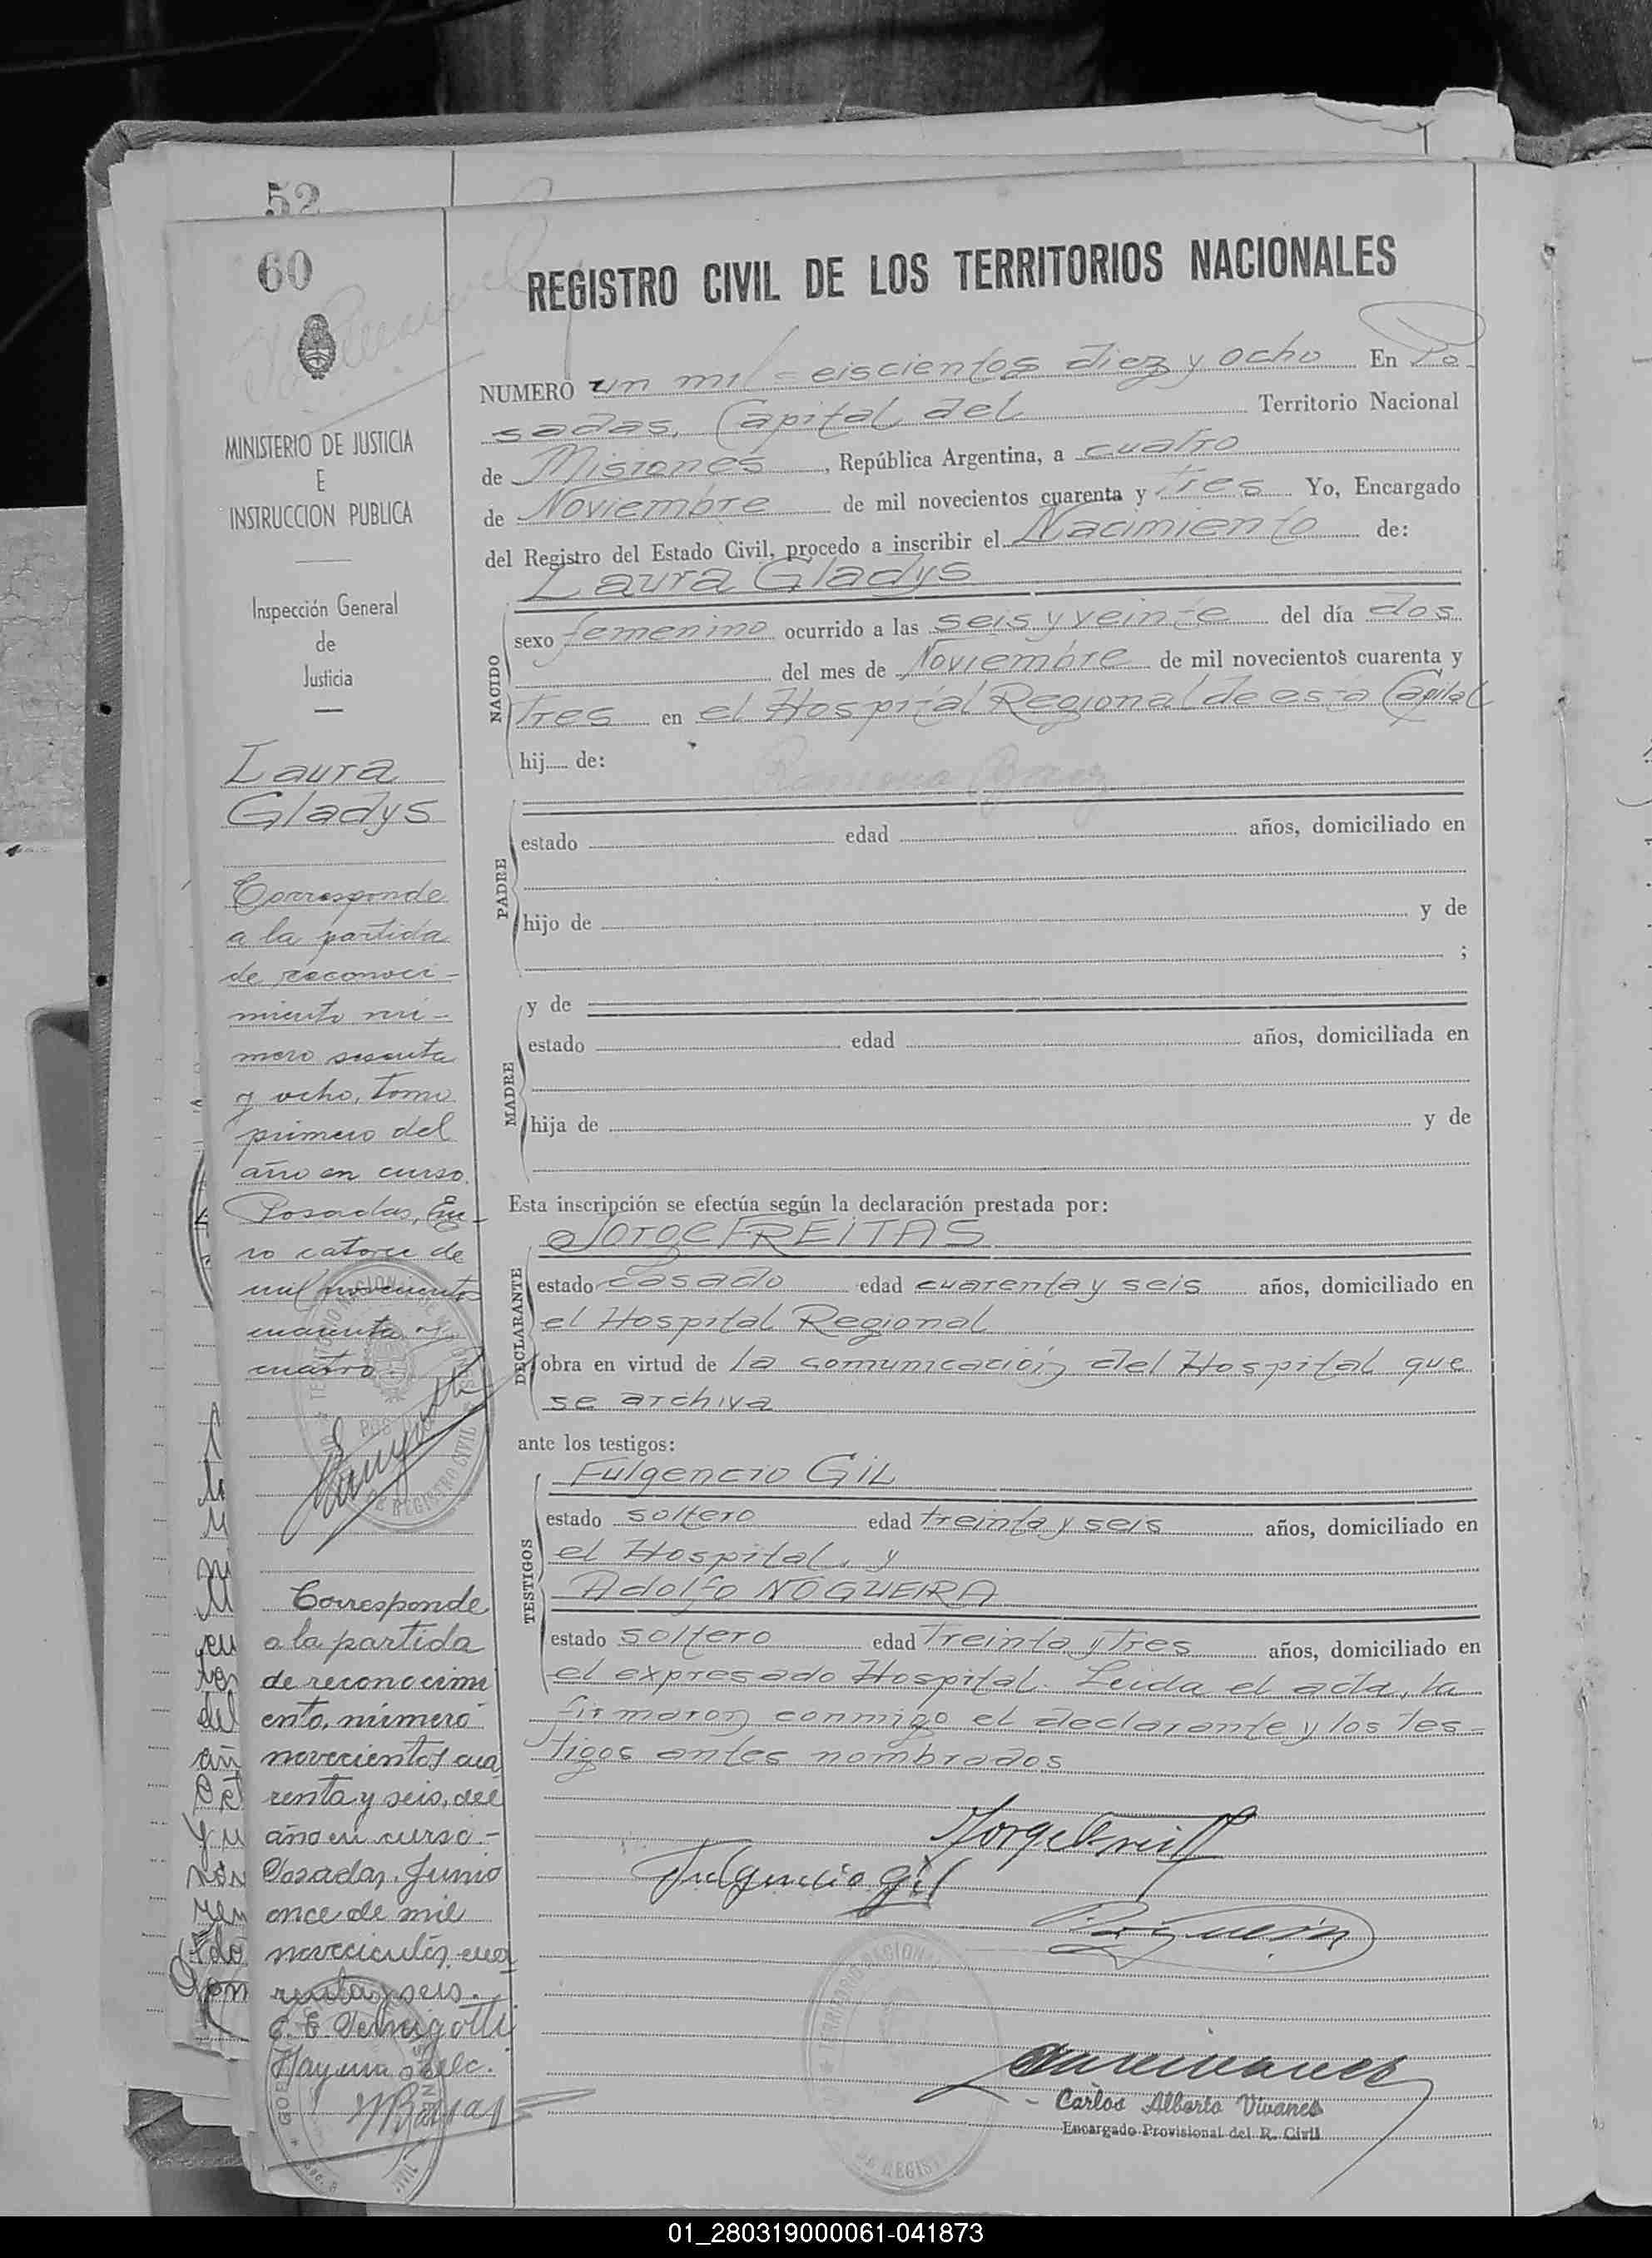 52
60
REGISTRO CIVIL DE LOS TERRITORIOS NACIONALES
MINISTERIO DE JUSTICIA
E
INSTRUCCION PUBLICA
Inspección General
de
Justicia
Laura
Gladys
Corresponde
a la partida
de reconoci-
miento nú-
mero sesenta
y ocho, tomo
primero del
año en curso.
Posadas, Ene-
ro catorce de
mil novecientos
cuarenta y
cuatro.
Corresponde
a la partida
de reconocimi
ento, número
novecientos cua
renta y seis, del
año en curso.-
Posadas, Junio
once de mil
novecientos cua
renta y seis.
NUMERO un mil seiscientos diez y ocho En Po-
sadas, Capital del Territorio Nacional
de Misiones, República Argentina, a cuatro
de Noviembre de mil novecientos cuarenta y tres Yo, Encargado
del Registro del Estado Civil, procedo a inscribir el Nacimiento de:
Laura Gladys
NACIDO
sexo femenino ocurrido a las seis y veinte del día dos
del mes de Noviembre de mil novecientos cuarenta y
tres en el Hospital Regional de esta Capital
hij de:
Ramona
PADRE
estado edad años, domiciliado en
hijo de y de
;
MADRE
y de
estado edad años, domiciliada en
hija de y de
Esta inscripción se efectúa según la declaración prestada por:
Jorge FREITAS
DECLARANTE
estado casado edad cuarenta y seis años, domiciliado en
el Hospital Regional
obra en virtud de la comunicación del Hospital que
se archiva
ante los testigos:
TESTIGOS
Fulgencio GIL
estado soltero edad treinta y seis años, domiciliado en
el Hospital, y
Adolfo NOGUEIRA
estado soltero edad treinta y tres años, domiciliado en
el expresado Hospital. Leida el acta, la
firmaron conmigo el declarante y los tes-
tigos antes nombrados
Fulgencio Gil
Carlos Alberto Vivanes
Encargado Provisional del R. Civil
01_280319000061-041873